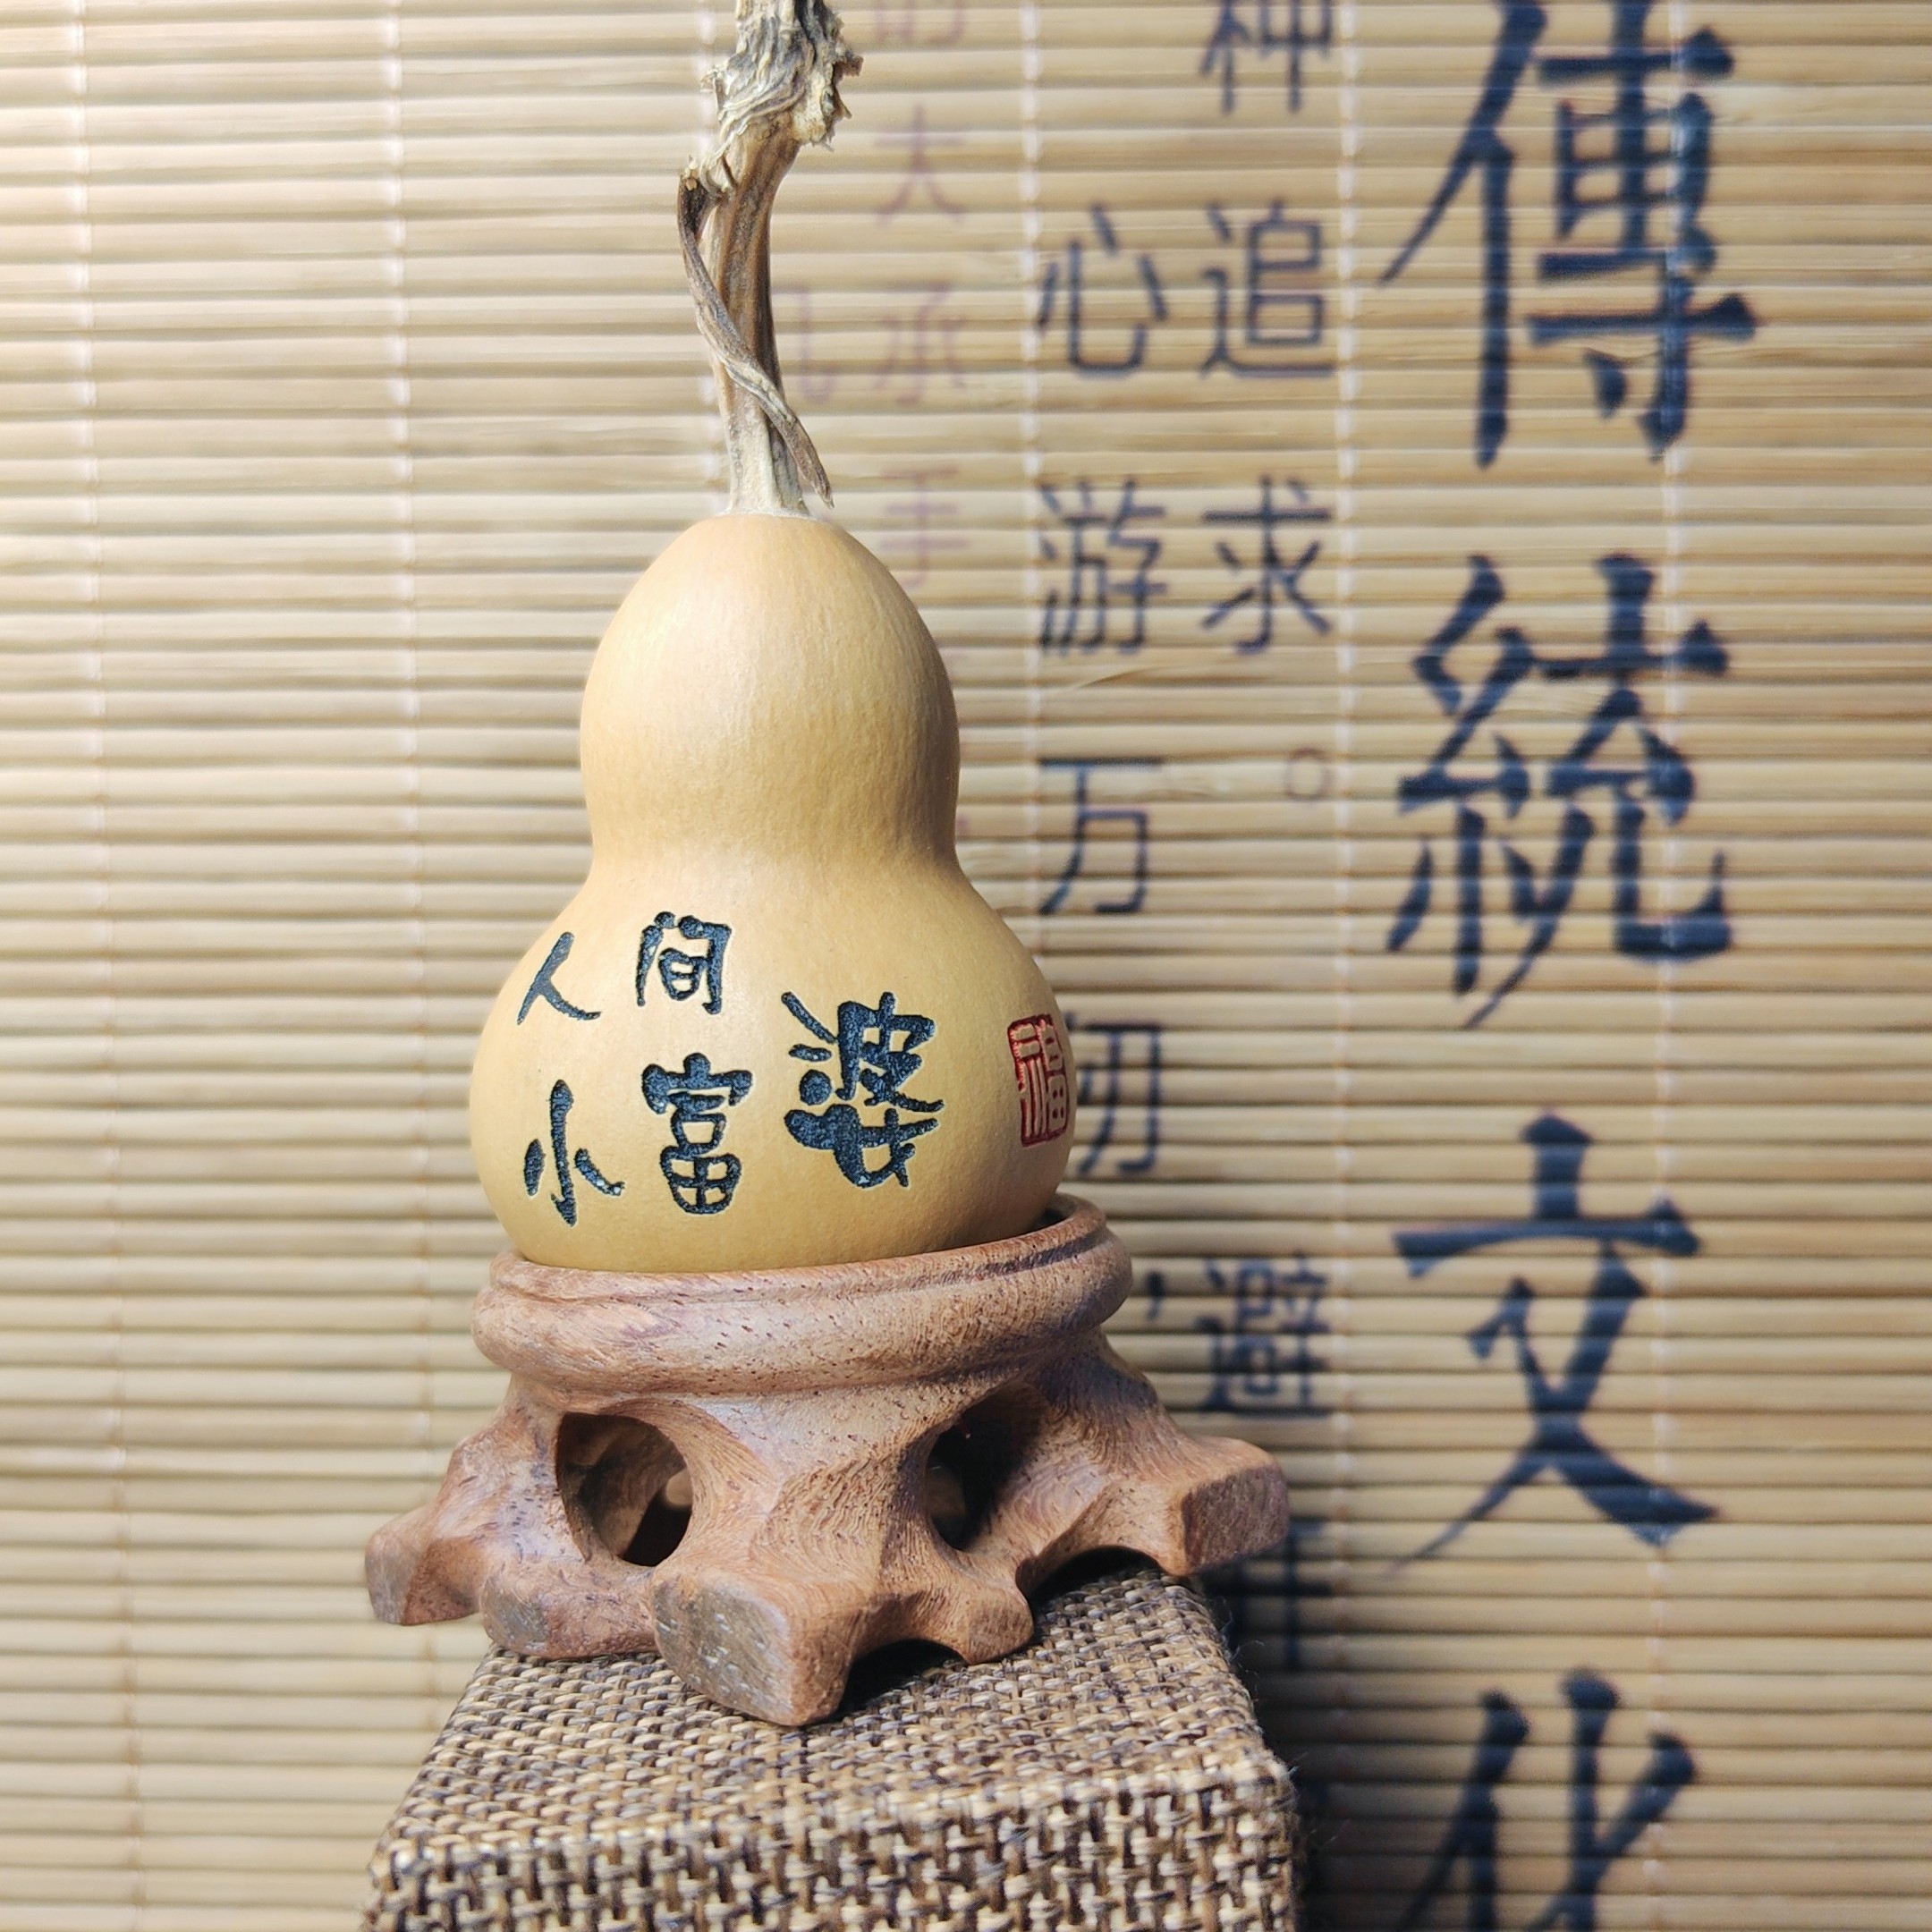 人间
小富婆
福
傳統文化
神追求。避
心游万仞，
的大承手